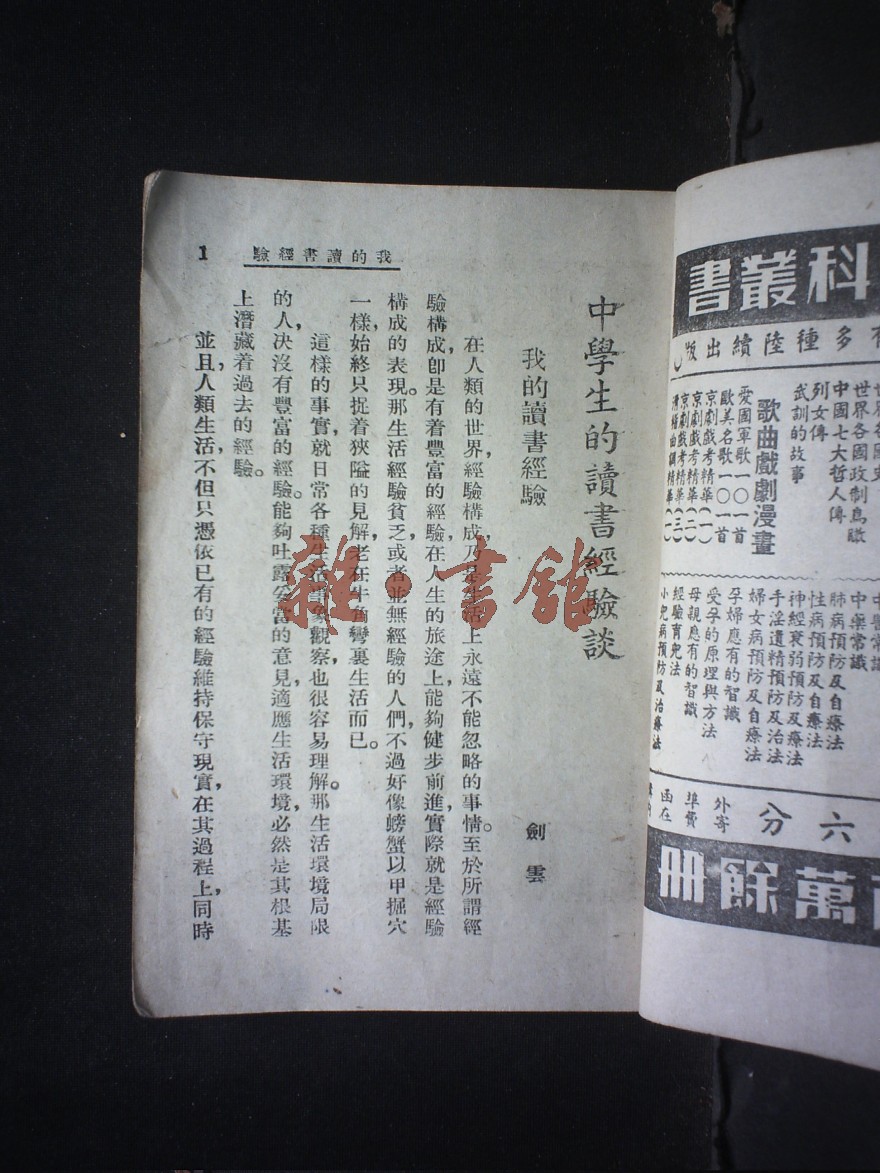 科叢書
多種陸續出版
世界各國政制鳥瞰
中國七大哲人傳
列女傳
武訓的故事
歌曲戲劇漫畫
愛國軍歌一〇一首
歐美名歌一〇一首
京劇戲考精華(一)
京劇戲考精華(二)
京劇戲考精華(三)
中醫常識
中藥常識
肺病預防及自療法
性病預防及自療法
神經衰弱預防及療法
手淫遺精預防及治法
婦女病預防及自療法
孕婦應有的智識
受孕的原理與方法
母親應有的智識
經驗育兒法
小兒病預防及治療法
六分
外埠函
寄費在
萬餘冊
中學生的讀書經驗談
我的讀書經驗
劍雲
在人類的世界,經驗構成,乃是生活上永遠不能忽略的事情。至於所謂經
驗構成,卽是有着豐富的經驗,在人生的旅途上,能夠健步前進,實際就是經驗
構成的表現。那生活經驗貧乏,或者並無經驗的人們,不過好像螃蟹以甲掘穴
一樣,始終只捉着狹隘的見解,老在牛角彎裏生活而已。
這樣的事實,就日常各種生活事象觀察,也很容易理解。那生活環境局限
的人,決沒有豐富的經驗。能夠吐露妥當的意見,適應生活環境,必然是其根基
上潛藏着過去的經驗。
並且,人類生活,不但只憑依已有的經驗維持保守現實,在其過程上,同時
我的讀書經驗
1
雜·書館